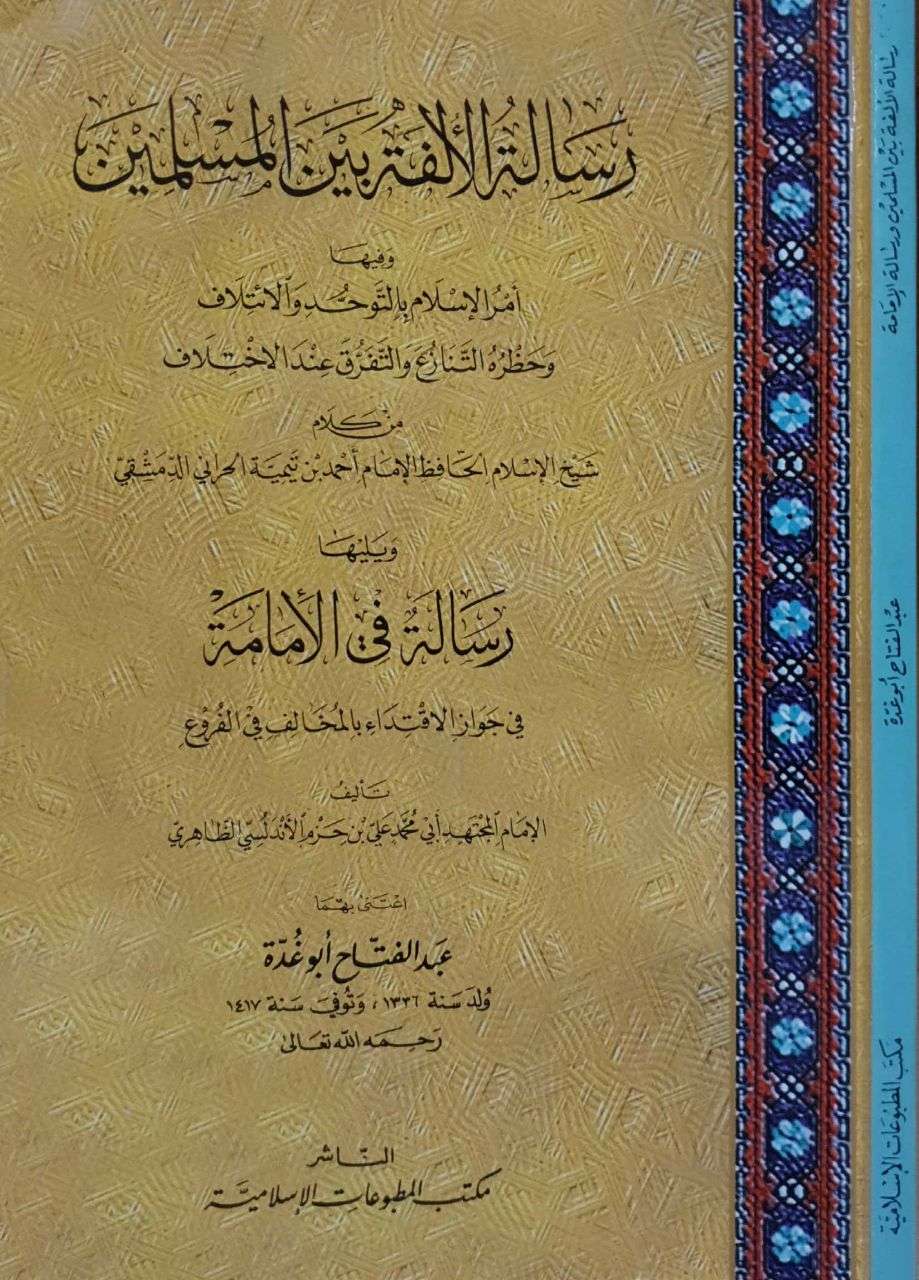 رسَالةُ الألفَة بَيْنَ المُسْلِمِيْنَ
وَفِيهَا
أمْرُ الإسْلَام بِالتَّوحُّدِ وَالائتِلَاف
وَحَظْرُهُ التَّنَازُعَ وَالتَّفَرُّقَ عِنْدَ الاخْتِلَاف
مِنْ كَلَام
شَيْخ الإسْلَام الحَافِظ الإمَام أحْمَد بْن تَيْمِيَة الحراني الدِّمَشْقِيّ
وَيَليْهَا
رسَالَةٌ فِي الإمَامَةِ
في جَوَازِ الاقْتِدَاءِ بِالمُخَالفِ فِي الفُرُوْعِ
تَأليفُ
الإمَامِ المُجْتَهِدِ أبي مُحَمَّد عَلِيّ بْنِ حَزْم الأَنْدَلُسِيّ الظَّاهِرِيّ
اعْتَنَى بِهِمَا
عَبد الفتّاح أبو غُدّة
وُلِدَ سَنة ١٣٣٦ ، وَتُوفِيَ سَنة ١٤١٧
رَحِمَه الله تعَالىٰ
النّاشر
مكتب المطبوعات الإسلاميَّة
رسالة الألفة بَيْنَ المسلميْن ورسالة الإمَامَة
عبْد الفتاح أبوغدّة
مكتب المطبوعات الإسْلاميّة